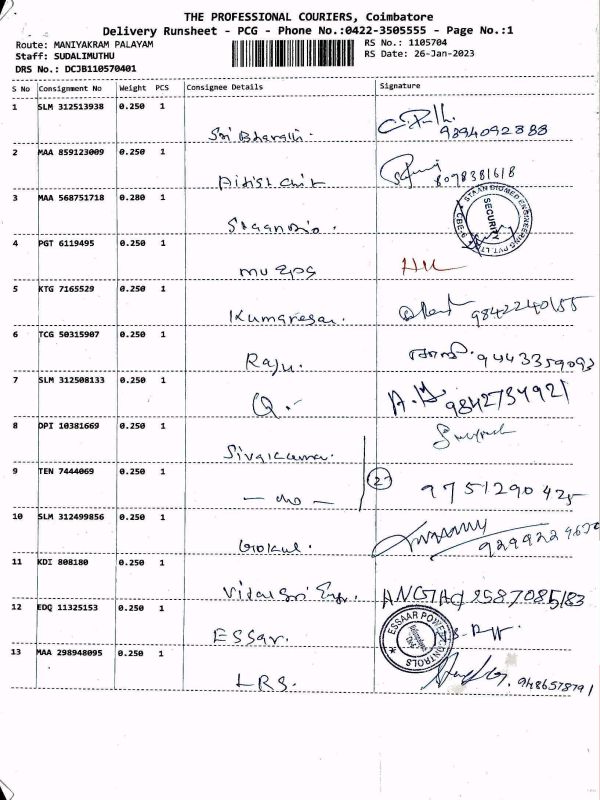 THE PROFESSIONAL COURIERS, Coimbatore
Delivery Runsheet - PCG - Phone No.:0422-3505555 - Page No.:1
Route: MANIYAKRAM PALAYAM
RS No.: 1105704
Staff: SUDALIMUTHU
RS Date: 26-Jan-2023
DRS No.: DCJB110570401
S No Consignment No Weight PCS Consignee Details Signature
1 SLM 312513938 0.250 1
Sri Bharathi. 9894092888
2 MAA 859123009 0.250 1
8078381618
3 MAA 568751718 0.280 1
STAAN BIOMED ENGINEERING PVT. LTD
CBE
SECURITY
4 PGT 6119495 0.250 1
5 KTG 7165529 0.250 1
Kumaresan. 9842240155
6 TCG 50315907 0.250 1
Raju. 9443359093
7 SLM 312508133 0.250 1
Q. 9842734921
8 DPI 10381669 0.250 1
Sivakumar.
9 TEN 7444069 0.250 1
2 9751290425
10 SLM 312499856 0.250 1
Gokul.
11 KDI 808180 0.250 1
12 EDQ 11325153 0.250 1
Essar. ESSAAR POWER CONTROLS
13 MAA 298948095 0.250 1
LRS. 9486578791